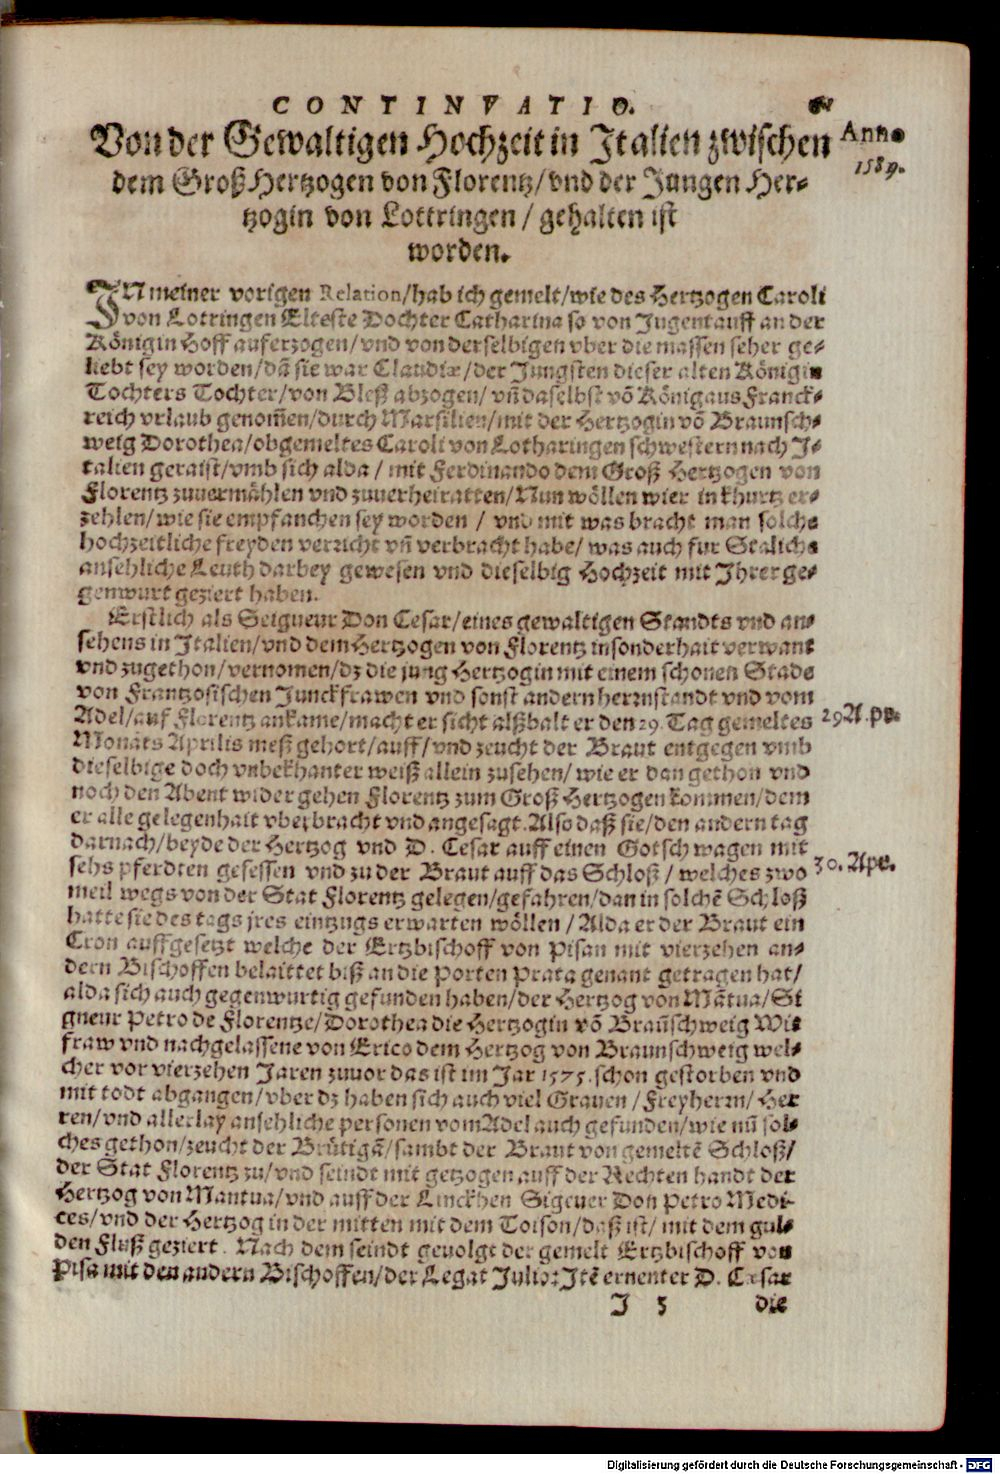 CONTINVATIO.
Von der Gewaltigen Hochzeit in Italien zwischen
Anno
1589.
dem Groß Hertzogen von Florentz/ vnd der Jungen Her-
tzogin von Lottringen / gehalten ist
worden.
IN meiner vorigen Relation/ hab ich gemelt/ wie des Hertzogen Caroli
von Lotringen Elteste Dochter Catharina so von Jugent auff an der
Königin Hoff auferzogen/ vnd von derselbigen vber die massen seher ge-
liebt sey worden/ dã sie war Claudiæ/ der Jungsten dieser alten Königin
Tochters Tochter/ von Bleß abzogen/ vñ daselbst võ König aus Franck-
reich vrlaub genom̃en/ durch Marsilien/ mit der Hertzogin võ Braunsch-
weig Dorothea/ obgemeltes Caroli von Lotharingen schwestern nach J-
talien geraist/ vmb sich alda / mit Ferdinando dem Groß Hertzogen von
Florentz zuuermählen vnd zuuerheiratten/ Nun wöllen wier in khurtz er-
zehlen/ wie sie empfanchen sey worden / vnd mit was bracht man solche
hochzeitliche freyden verricht vñ verbracht habe/ was auch fur Staliche
ansehliche Leuth darbey gewesen vnd dieselbig Hochzeit mit Jhrer ge-
genwurt geziert haben.
Erstlich als Seigneur Don Cesar/ eines gewaltigen Standts vnd an-
sehens in Italien/ vnd dem Hertzogen von Florentz insonderhait verwant
vnd zugethon/ vernomen/ dz die jung Hertzogin mit einem schonen Stade
von Frantzosischen Junckfrawen vnd sonst andern herrnstandt vnd vom
Adel/ auf Florentz ankame/ macht er sicht alßbalt er den 29. Tag gemeltes
29 Ap.
Monats Aprilis meß gehort/ auff/ vnd zeucht der Braut entgegen vmb
dieselbige doch vnbekhanter weiß allein zusehen/ wie er dan gethon vnd
noch den Abent wider gehen Florentz zum Groß Hertzogen kommen/ dem
er alle gelegenhait vberbracht vnd angesagt. Also daß sie/ den andern tag
darnach/ beyde der Hertzog vnd D. Cesar auff einen Gotsch wagen mit
sehs pferdten gesessen vnd zu der Braut auff das Schloß / welches zwo
30. Ape.
meil wegs von der Stat Florentz gelegen/ gefahren/ dan in solchẽ Schloß
hatte sie des tags jres eintzugs erwarten wöllen / Alda er der Braut ein
Cron auffgesetzt welche der Ertzbischoff von Pisan mit vierzehen an-
dern Bischoffen belaittet biß an die Porten Prata genant getragen hat/
alda sich auch gegenwurtig gefunden haben/ der Hertzog von Mãtua/ Si
gneur Petro de Florentze/ Dorothea die Hertzogin võ Braũschweig Wit
fraw vnd nachgelassene von Erico dem Hertzog von Braunschweig wel-
cher vor vierzehen Jaren zuuor das ist im Jar 1575. schon gestorben vnd
mit todt abgangen/ vber dz haben sich auch viel Grauen / Freyherrn/ Her
ren/ vnd allerlay ansehliche personen vom Adel auch gefunden/ wie nũ sol-
ches gethon/ zeucht der Brütigã/ sambt der Braut von gemeltẽ Schloß/
der Stat Florentz zu/ vnd seindt mit getzogen auff der Rechten handt der
Hertzog von Mantua/ vnd auff der Linckhen Sigeuer Don Petro Medi-
ces/ vnd der Hertzog in der mitten mit dem Toison/ daß ist/ mit dem gul-
den Fluß geziert. Nach dem seindt geuolgt der gemelt Ertzbischoff von
Pisa mit den andern Bischoffen/ der Legat Julio: Jtẽ ernenter D. Cæsar
J 3
die
Digitalisierung gefördert durch die Deutsche Forschungsgemeinschaft - DFG